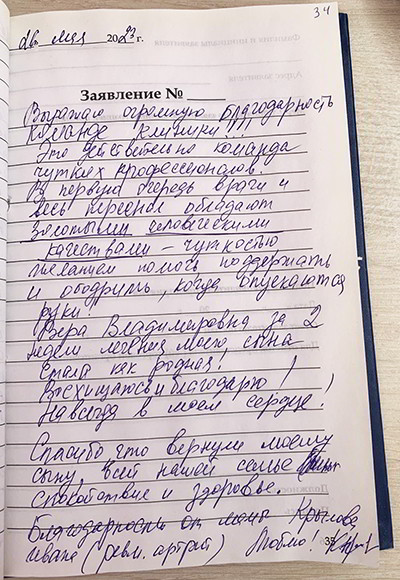 34
мая 2023 г.
Заявление №
Выражаю огромную благодарность
команде клиники!
Это действительно команда
чутких профессионалов.
В первую очередь врачи и
весь персонал обладают
золотыми человеческими
качествами – чуткостью
желанием помочь поддержать
и ободрить, когда опускаются
руки!
Вера Владимировна за 2
недели лечения моего сына
стала как родная!
Восхищаюсь и благодарю!
Навсегда в моем сердце!
Спасибо что вернули моему
сыну, всей нашей семье
спокойствие и здоровье.
Благодарности от мамы Крылова
Ивана (ревм. артрит) Люблю!
35